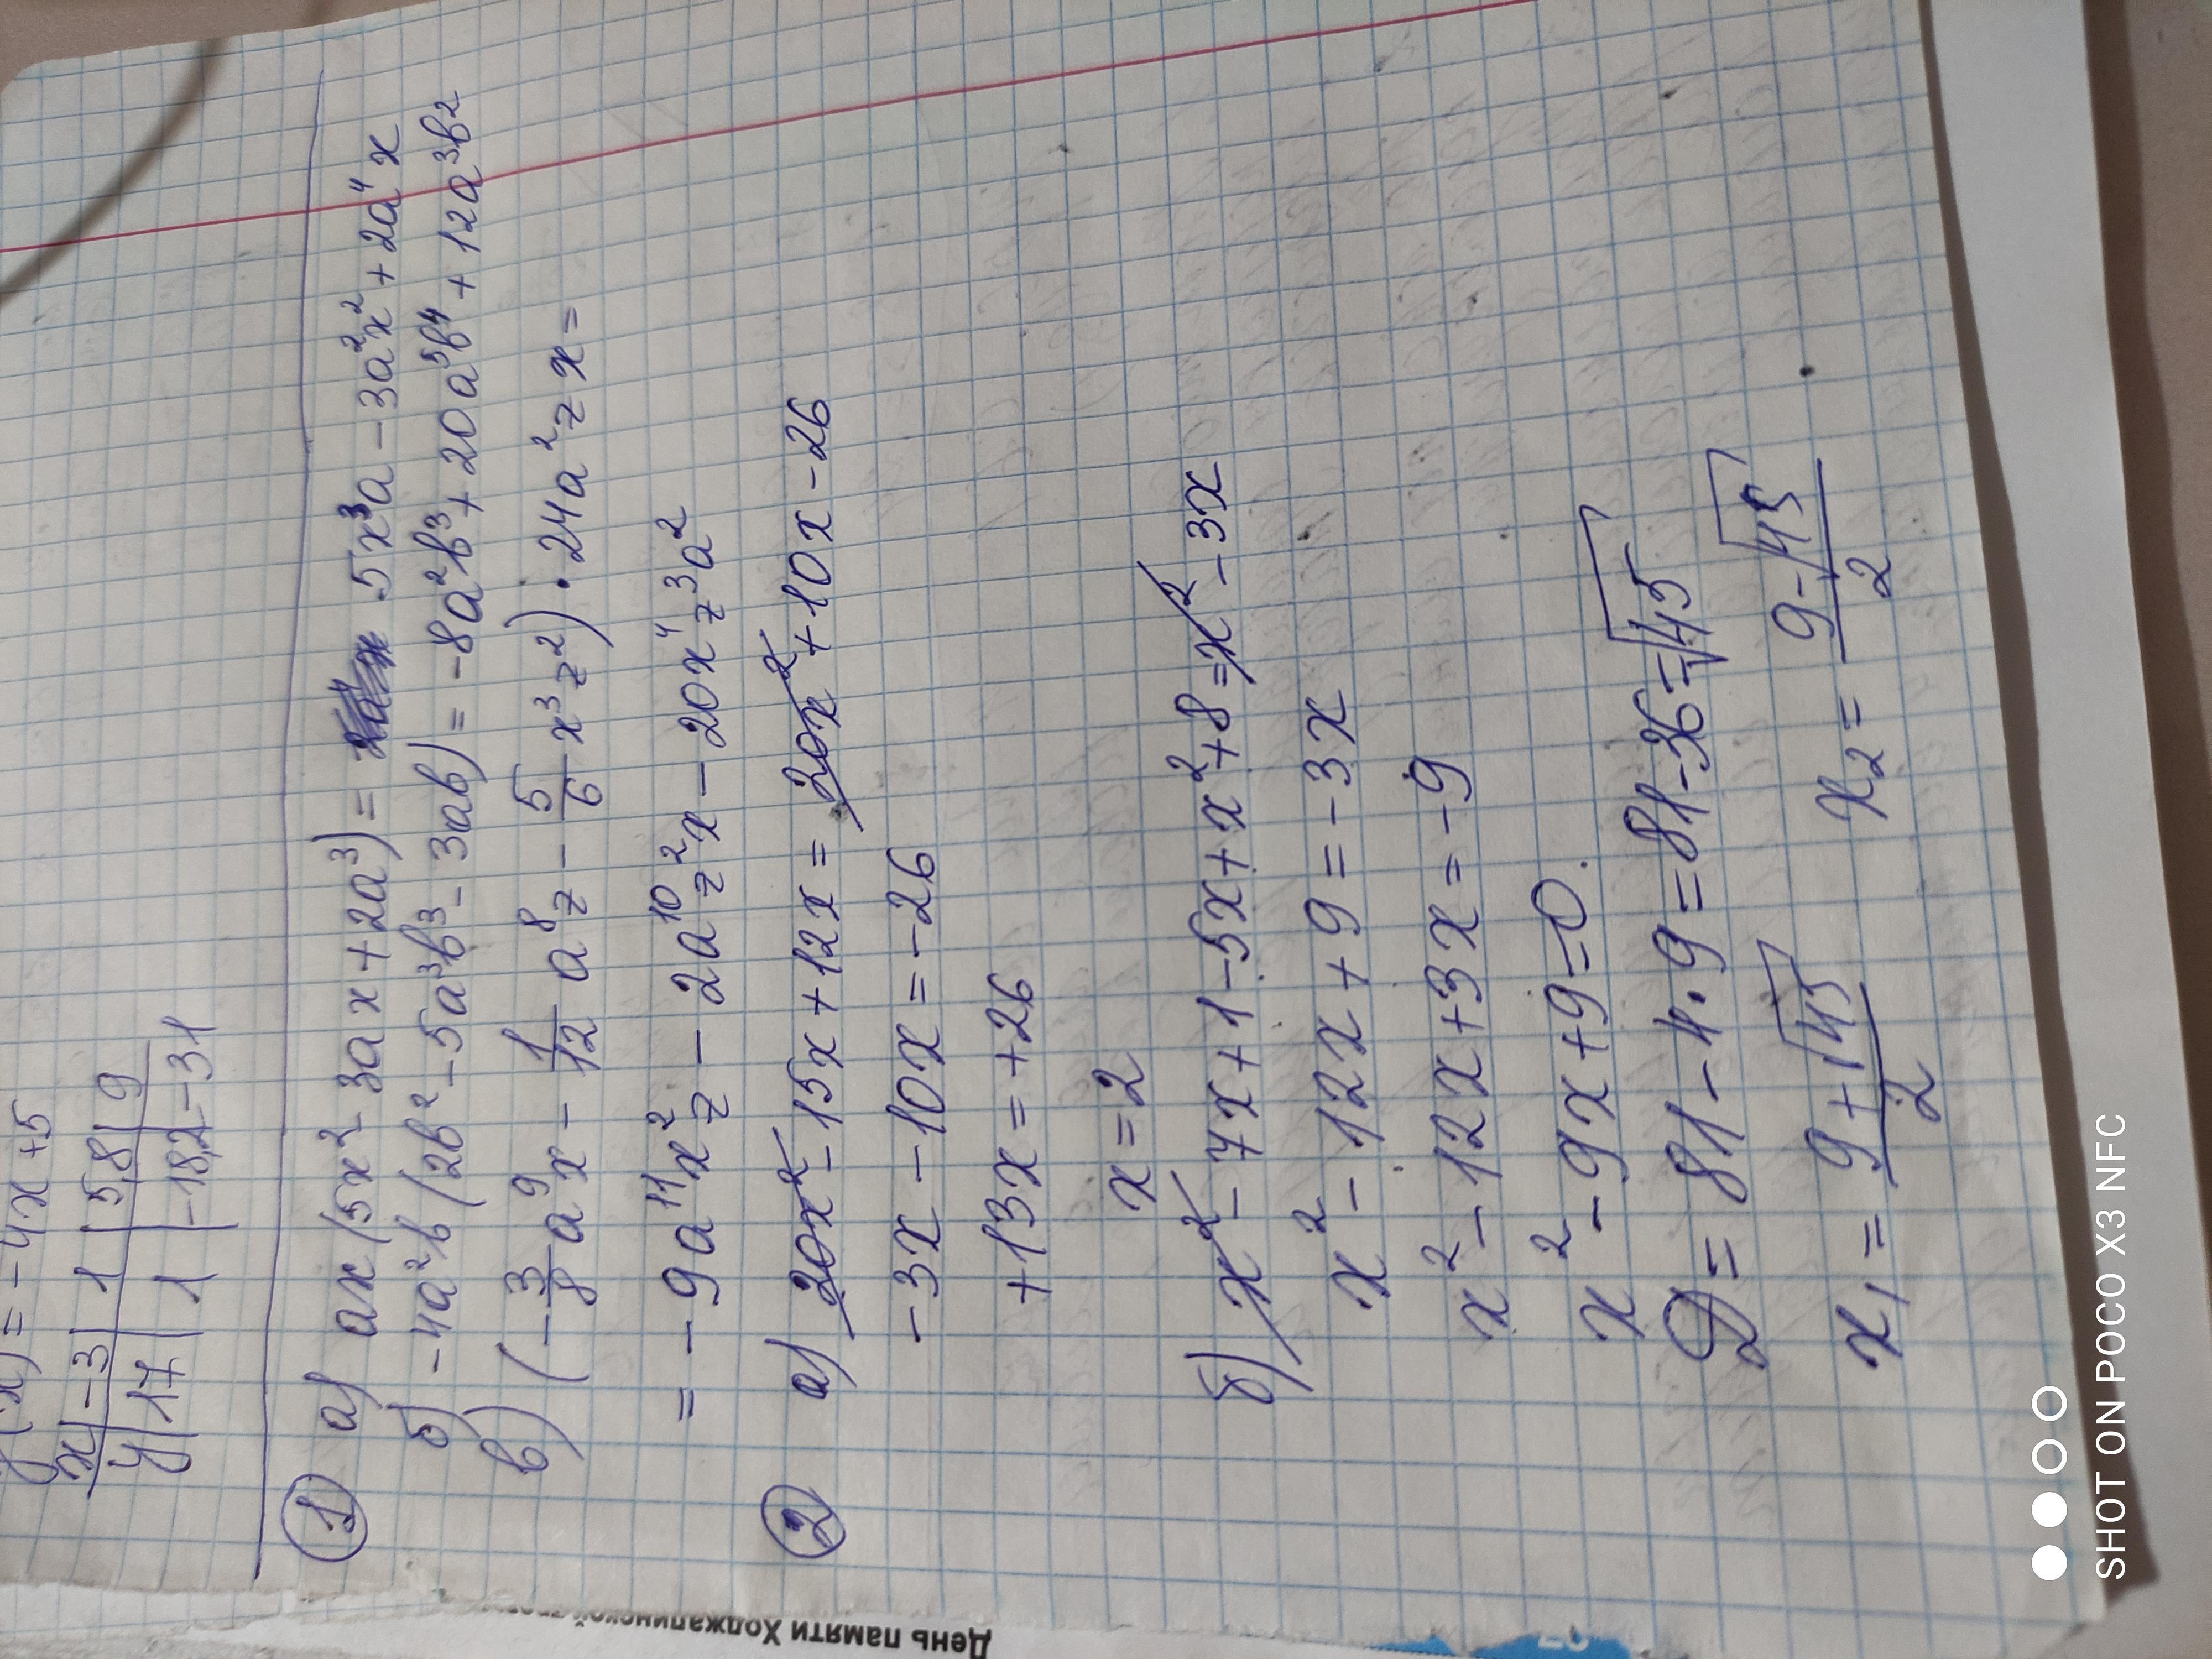 y(x) = -4x +5
x | -3 | 1 | 5,8 | 9
y | 17 | 1 | -18,2 | -31
① а) ax(5x² - 3ax + 2a³) = 5x³a - 3a²x² + 2a⁴x
б) -4a²b(2b² - 5a³b³ - 3ab) = -8a²b³ + 20a⁵b⁴ + 12a³b²
в) (-3/8 a⁹x - 1/12 a⁸z - 5/6 x³z²) · 24a²zx =
= -9a¹¹x²z - 2a¹⁰z²x - 20x⁴z³a²
② а) 20x² - 15x + 12x = 20x² + 10x - 26
-3x - 10x = -26
+13x = +26
x = 2
б) x² - 7x + 1 - 5x + x² + 8 = x² - 3x
x² - 12x + 9 = -3x
x² - 12x + 3x = -9
x² - 9x + 9 = 0.
D = 81 - 4·9 = 81 - 36 = √45
x₁ = (9 + √45)/2 x₂ = (9 - √45)/2
День памяти Ходжалинской
SHOT ON POCO X3 NFC